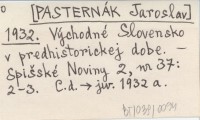 [PASTERNÁK Jaroslav]
1932. Východné Slovensko
v predhistorickej dobe. –
Spišské Noviny 2, nr 37:
2-3. C.d. → jur. 1932 a.